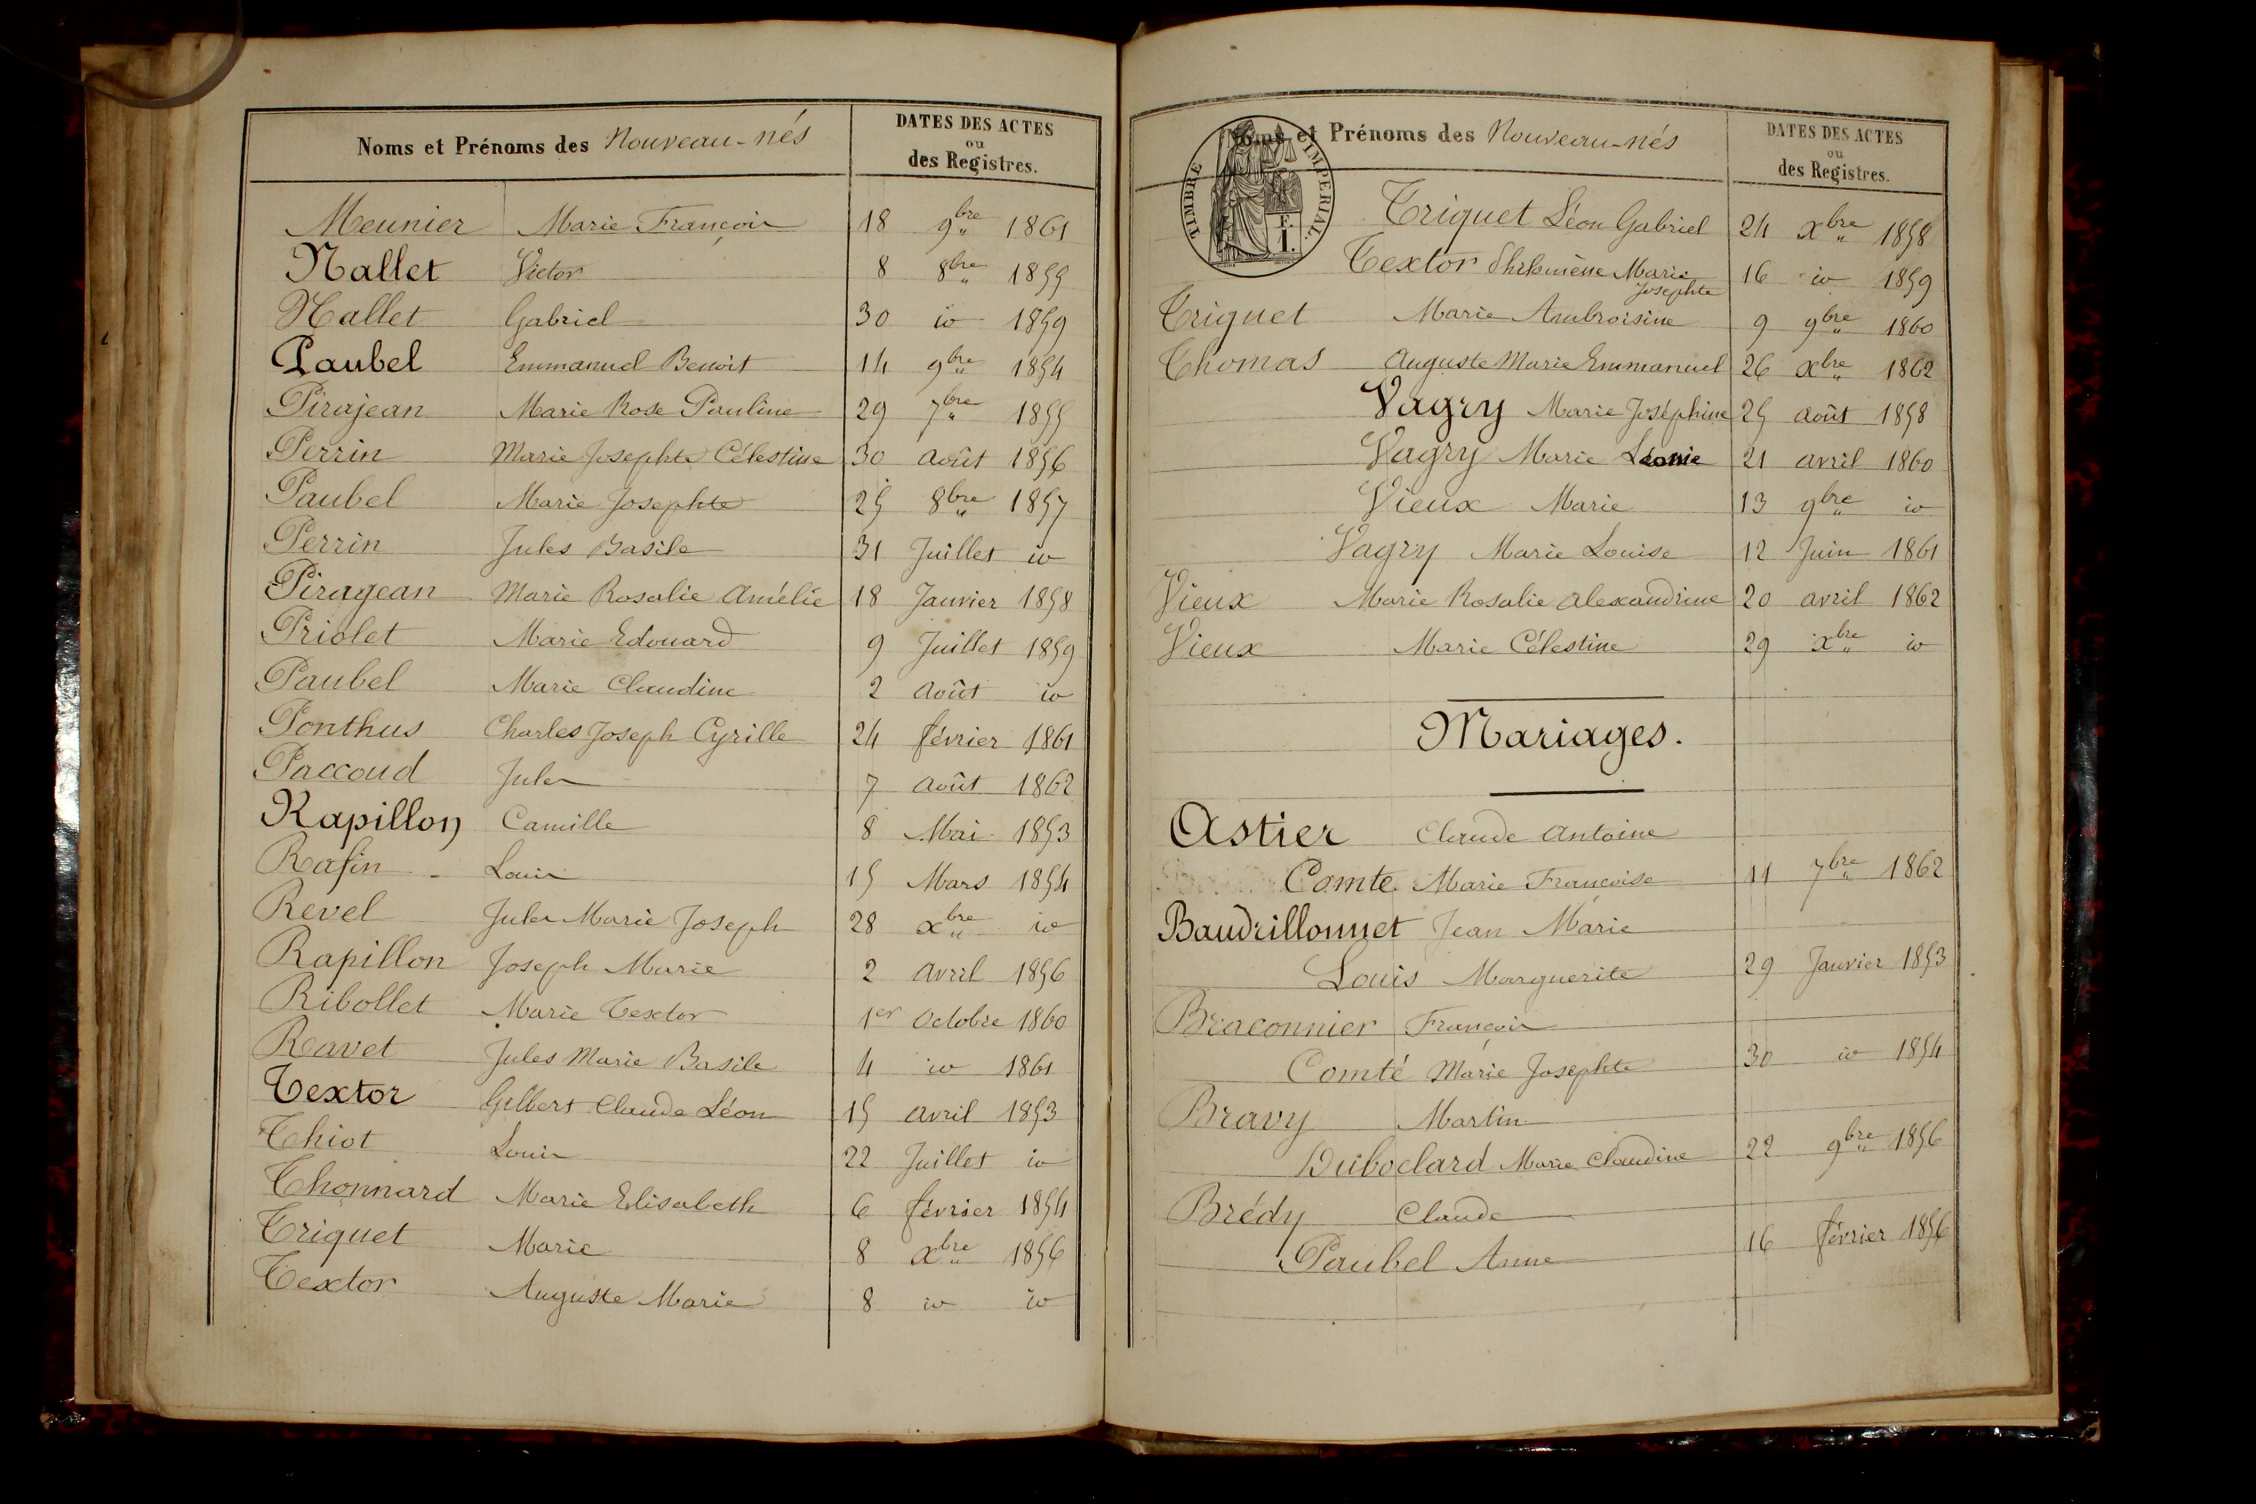 Noms et Prénoms des Nouveau-nés
DATES DES ACTES
ou
des Registres.
Meunier Marie François 18 9bre 1861
Nallet Victor 8 8bre 1855
Nallet Gabriel 30 io 1859
Paubel Emmanuel Benoit 14 9bre 1854
Pirajean Marie Rose Pauline 29 7bre 1855
Perrin Marie Josephte Célestine 30 Août 1856
Paubel Marie Josephte 25 8bre 1857
Perrin Jules Basile 31 Juillet io
Pirajean Marie Rosalie Amélie 18 Janvier 1858
Priolet Marie Edouard 9 Juillet 1859
Paubel Marie Claudine 2 Août io
Ponthus Charles Joseph Cyrille 24 février 1861
Paccoud Jules 7 Août 1862
Rapillon Camille 8 Mai 1853
Rafin - Louis 15 Mars 1854
Revel Jules Marie Joseph 28 xbre io
Rapillon Joseph Marie 2 Avril 1856
Ribollet Marie Textor 1er Octobre 1860
Ravet Jules Marie Basile 4 io 1861
Textor Gilbert Claude Léon 15 Avril 1853
Thiot Louis 22 Juillet io
Thonnard Marie Elisabeth 6 février 1854
Triquet Marie 8 xbre 1856
Textor Auguste Marie 8 io io
Noms et Prénoms des Nouveau-nés
DATES DES ACTES
ou
des Registres.
TIMBRE IMPERIAL.
F.
1.
Triquet Léon Gabriel 24 xbre 1858
Textor Philomène Marie 16 io 1859
Josephte
Triquet Marie Ambroisine 9 9bre 1860
Thomas Auguste Marie Emmanuel 26 xbre 1862
Vagry Marie Joséphine 25 Août 1858
Vagry Marie Léonie 21 avril 1860
Vieux Marie 13 9bre io
Vagry Marie Louise 12 Juin 1861
Vieux Marie Rosalie Alexandrine 20 avril 1862
Vieux Marie Célestine 29 xbre io
Mariages.
Astier Claude Antoine
Comte Marie Françoise 11 7bre 1862
Baudrillonnet Jean Marie
Louis Marguerite 29 Janvier 1853
Braconnier François
Comté Marie Josephte 30 io 1854
Bravy Martin
Duboclard Marie Claudine 22 9bre 1856
Brédy Claude
Paubel Anne 16 février 1856